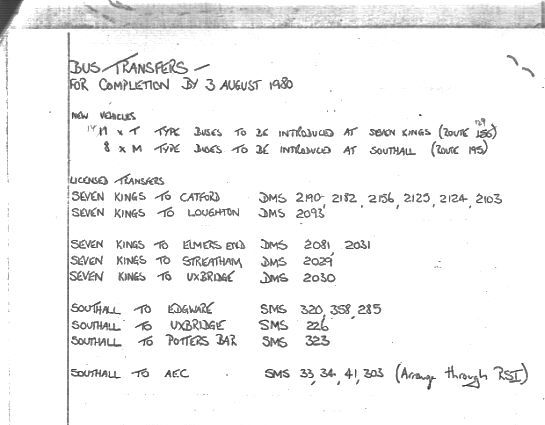 BUS TRANSFERS —
FOR COMPLETION BY 3 AUGUST 1980
NEW VEHICLES
14 x T TYPE BUSES TO BE INTRODUCED AT SEVEN KINGS (ROUTE 129)
8 x M TYPE BUSES TO BE INTRODUCED AT SOUTHALL (ROUTE 195)
LICENSED TRANSFERS
SEVEN KINGS TO CATFORD DMS 2190, 2182, 2156, 2125, 2124, 2103
SEVEN KINGS TO LOUGHTON DMS 2093
SEVEN KINGS TO ELMERS END DMS 2081, 2031
SEVEN KINGS TO STREATHAM DMS 2029
SEVEN KINGS TO UXBRIDGE DMS 2030
SOUTHALL TO EDGWARE SMS 320, 358, 285
SOUTHALL TO UXBRIDGE SMS 226
SOUTHALL TO POTTERS BAR SMS 323
SOUTHALL TO AEC SMS 33, 34, 41, 303 (Arrange through RSI)